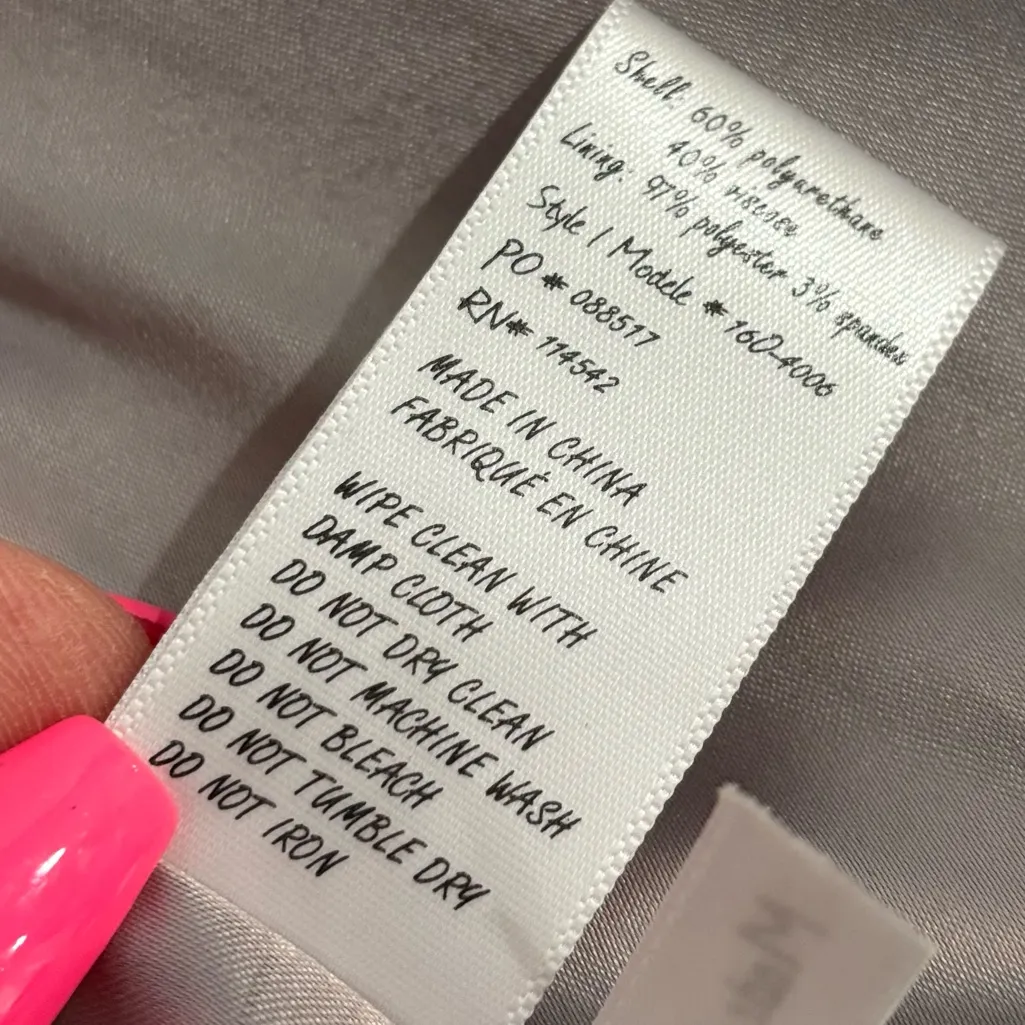 Shell: 60% polyurethane
40% viscose
Lining: 97% polyester 3% spandex
Style / Modele # 160-4006
PO # 088517
RN# 114542
MADE IN CHINA
FABRIQUÉ EN CHINE
WIPE CLEAN WITH
DAMP CLOTH
DO NOT DRY CLEAN
DO NOT MACHINE WASH
DO NOT BLEACH
DO NOT TUMBLE DRY
DO NOT IRON